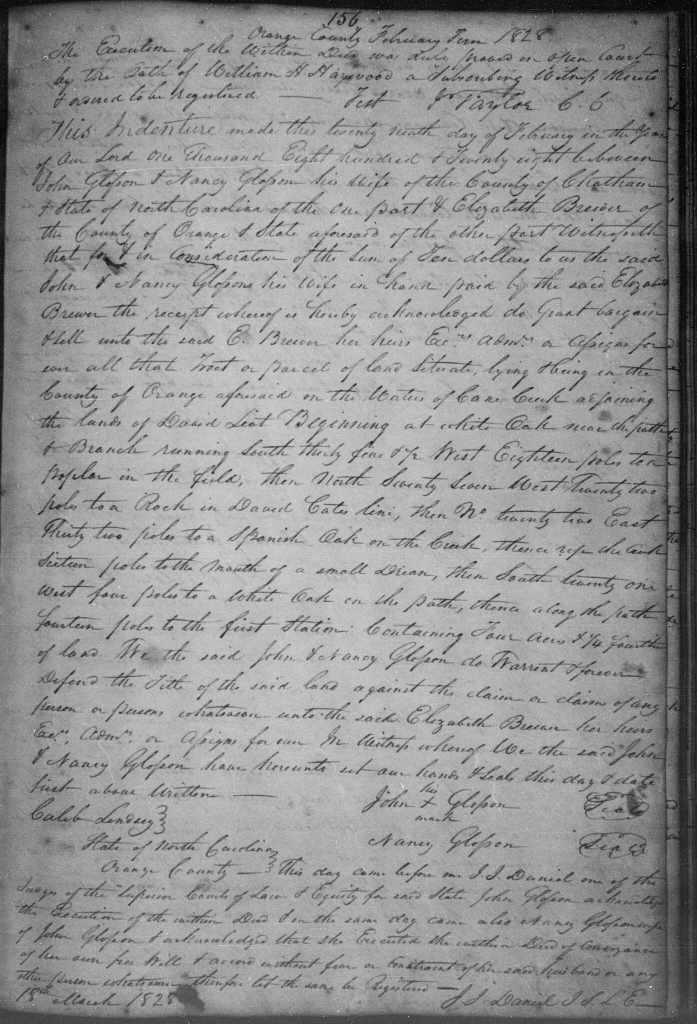 156
Orange County February Term 1828
The Execution of the Within Deed was duly proved in open Court
by the Oath of William H. Haywood a Subscribing Witness thereto
& ordered to be registered — Test J Taylor C. C
This Indenture made this twenty ninth day of February in the Year
of Our Lord One Thousand Eight hundred & Twenty eight between
John Glosson & Nancy Glosson his Wife of the County of Chatham
& State of North Carolina of the One part & Elizabeth Brewer of
the County of Orange & State aforesaid of the other part Witnesseth
that for & in Consideration of the Sum of Ten dollars to us the said
John & Nancy Glosson his Wife in hand paid by the said Elizabeth
Brewer the receipt whereof is hereby acknowledged do Grant bargain
& sell unto the said E. Brewer her heirs Exrs. Admrs. or Assigns for
ever all that Tract or parcel of land Situate, lying & being in the
County of Orange aforesaid on the Waters of Cane Creek adjoining
the lands of David Beginning at white Oak near the path
& Branch running South thirty five & 1/2 West Eighteen poles to a
poplar in the field, then North Seventy Seven West Twenty two
poles to a Rock in David Cates line, then No. twenty two East
Thirty two poles to a Spanish Oak on the Creek, thence up the Creek
Sixteen poles to the mouth of a small Drean, then South twenty one
West four poles to a White Oak on the path, thence along the path
fourteen poles to the first Station. Containing Four Acres & 1/4 fourth
of land We the said John & Nancy Glosson do Warrent & forever
Defend the Title of the said land against the claim or claims of any
person or persons whatsoever unto the said Elizabeth Brewer her heirs
Exrs. Admrs. or Assigns for ever In Witness whereof We the said John
& Nancy Glosson have hereunto set our hands & Seals this day & date
first above Written —
his
John + Glosson Seal
mark
Caleb Lindsey
Nancy Glosson Seal
State of North Carolina
Orange County — This day came before me J. J. Daniel one of the
Judges of the Superior Courts of Law & Equity for said State John Glosson acknowledged
the Execution of the within Deed & on the same day came also Nancy Glosson wife
of John Glosson & acknowledged that she Executed the within Deed of Conveyance
of her own free Will & accord without fear or Constraint of her said husband or any
other person whatsoever therefore let the same be Registered —
18th March 1828 J. J. Daniel J. S. L. E. —